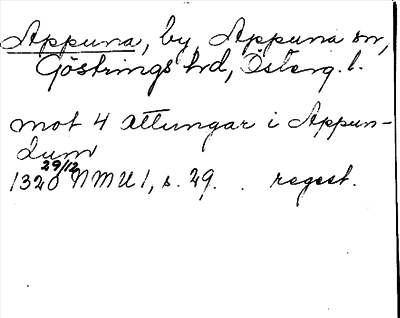 Appuna, by, Appuna sn,
Göstrings hd, Österg. l.
mot 4 attungar i Appun-
dum
29/12
1320 NMU 1, s. 29. . regest.